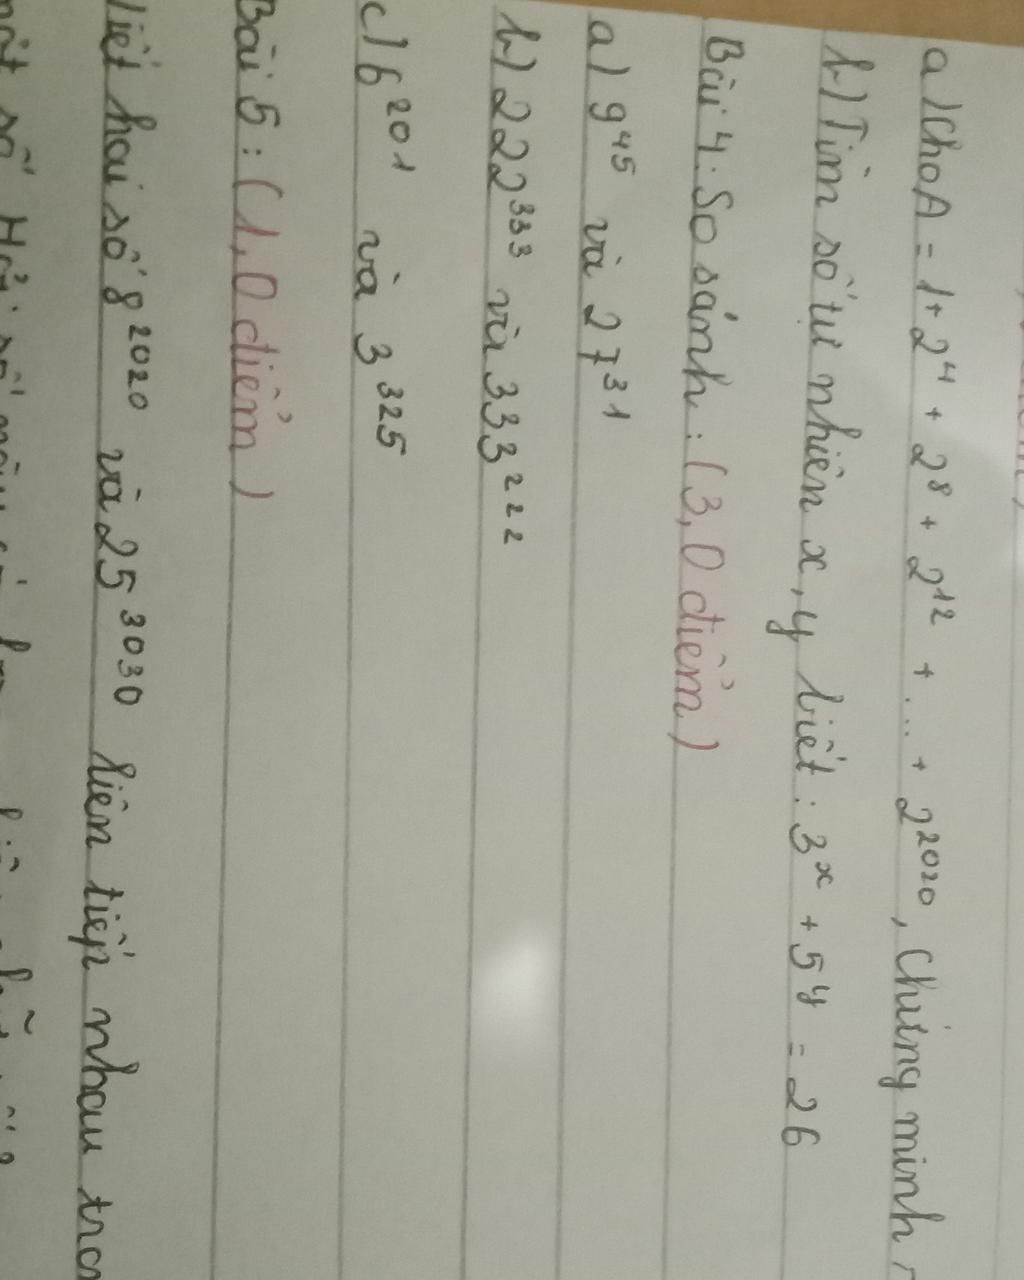 a) Cho A = 1 + 2⁴ + 2⁸ + 2¹² + ... + 2²⁰²⁰, Chứng minh
b) Tìm số tự nhiên x, y biết : 3ˣ + 5ʸ = 26
Bài 4 : So sánh : (3,0 điểm)
a) 9⁴⁵ và 27³¹
b) 222³³³ và 333²²²
c) 6²⁰¹ và 3³²⁵
Bài 5 : (1,0 điểm)
Viết hai số 8²⁰²⁰ và 25³⁰³⁰ liên tiếp nhau
một số Hỏi số